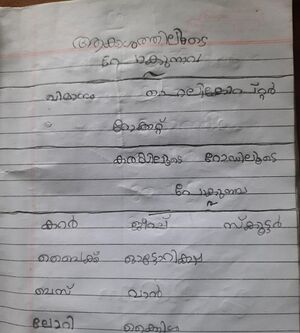 ആകാശത്തിലൂടെ
പോകുന്നവ
വിമാനം ഹെലികോപ്റ്റർ
റോക്കറ്റ്
കരയിലൂടെ റോഡിലൂടെ
പോകുന്നവ
കാർ ജീപ്പ് സ്കൂട്ടർ
ബൈക്ക് ഓട്ടോറിക്ഷ
ബസ് വാൻ
ലോറി